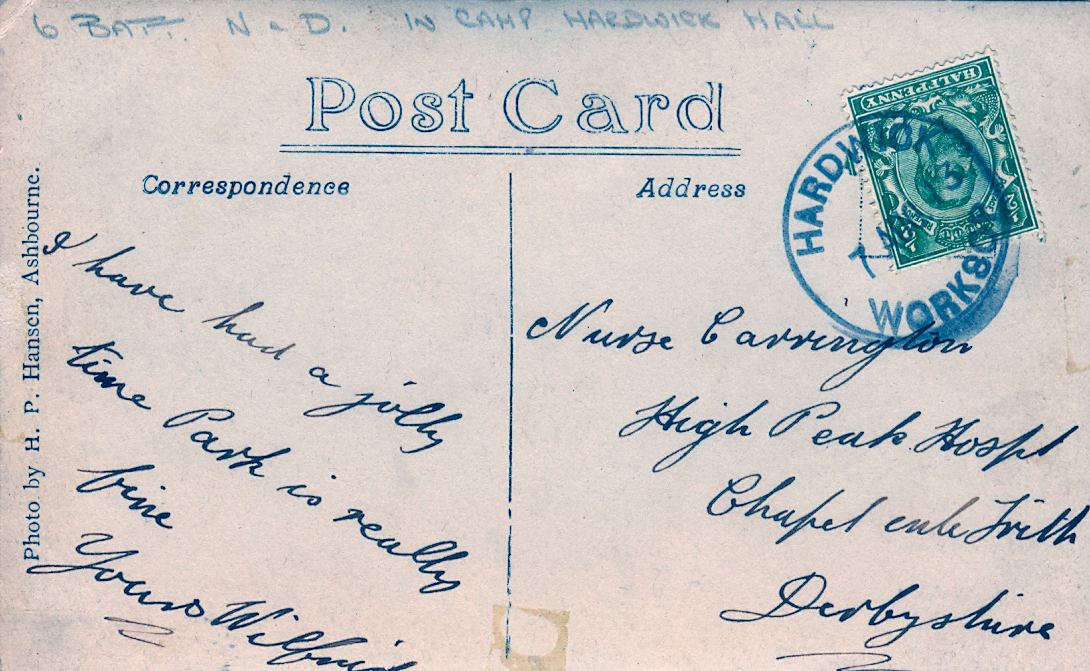 6 BATT. N & D. IN CAMP HARDWICK HALL
Post Card
Correspondence
Address
Photo by H. P. Hansen, Ashbourne.
I have had a jolly
time Park is really
fine
Yours Wilfrid
HALFPENNY
½
½
HARDWICK
WORKSOP
Nurse Carrington
High Peak Hospt
Chapel enle Frith
Derbyshire